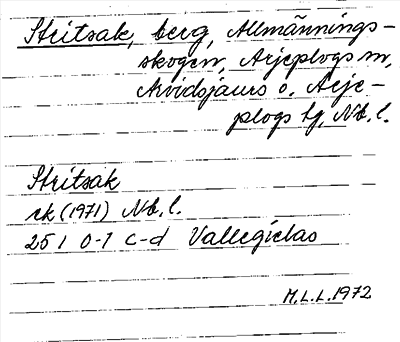 Stritsak, berg, Allmännings-
skogen, Arjeplogs sn,
Arvidsjaurs o. Arje-
plogs tg, Nb. l.
Stritsak
rk (1971) Nb. l.
25 I 0-1 c-d Vallegielas
M.L.L. 1972